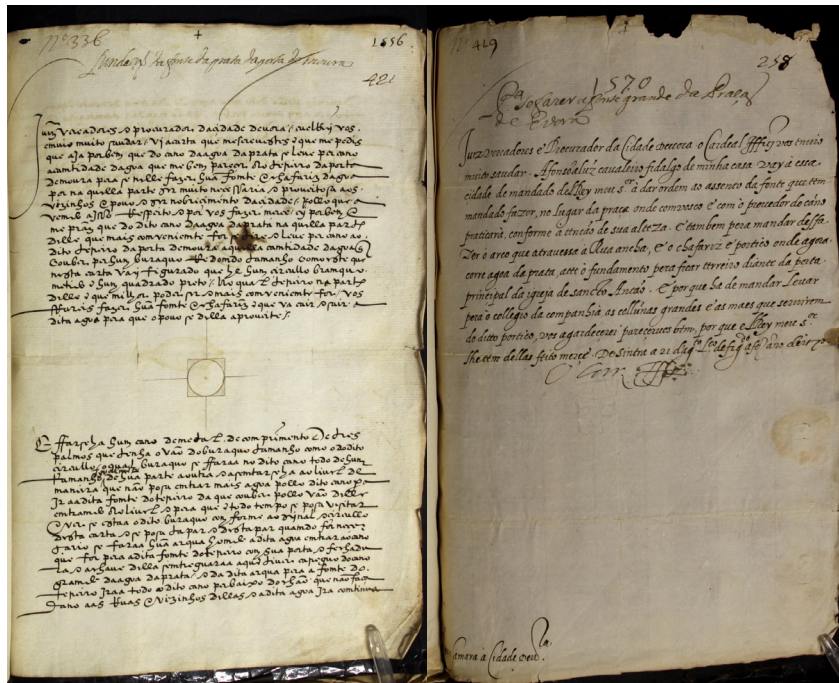 Nº 336
1556
fonte da prata da porta de moura
421
Juiz vereadores & procurador da cidade devora / eu el Rey vos
emvio muito saudar / Vi a carta que me screvestes & que me pedis
que aja por bem que do cano da agoa da prata se leve per cano
a camtidade dagoa que me bem parecer Ao terreiro da porta
de moura pera se nelle fazer hũa fomte & chafariz dagoa
por na quella parte ser muito necessaria & proveitosa aos
vezinhos & povo & por nobrecimento da cidade / & pollo que a
vemdo a isso Respeito & por vos fazer merce ey por bem &
me praz que do dito cano da agoa da prata na quella parte
delle que mais comveniente for se tire & leve per cano ao
dito terreiro da porta de moura aquella camtidade dagoa &
couber per hum buraquo Redomdo tamanho como este que
nesta carta vay figurado que he hum circullo bramquo
metido em hum quadrado preto / No qual terreiro na parte
delle & que milhor poder ser & mais comveniente for / vos
fazer hũa fomte & chafariz & que va cair & sair a
dita agoa pera que o povo se della aproveite /
E farseha hum cano de metal de comprimento de tres
palmos que tenha o vão do buraquo tamanho como o do dito
circullo o qual buraquo se faraa no dito cano todo de hum
tamanho de hũa parte a outra & asemtarseha ao livel de
maneira que não posa emtrar mais agoa pollo dito cano pera
Ir aa dita fomte do terreiro da que couber pollo vão delle
emtramdo ao livel & pera que em todo tempo se posa visitar
& ver se estaa o dito buraquo comforme ao synal & circullo
desta carta & se posa tapar & destapar quamdo for neces
sario se faraa hũa arqua homde a dita agoa emtrar ao cano
que for pera a dita fomte do terreiro com sua porta & fechadu
ra & a chave della se emtreguaraa a que tiver carreguo do cano
gramde da agoa da prata / & da dita arqua pera a fomte do
terreiro Iraa todo o dito cano per baixo do chão que não faça
dano aas Ruas & vezinhos dellas & a dita agoa Ira comtinua
Nº 429
258
1570
Pa se fazer a fonte grande da Praça
de Evora
Juiz Vereadores e Procurador da Cidade Devora. o Cardeal Iffte vos envio
muito saudar. Afonso aluz cavaleiro fidalgo de minha casa vay a essa
cidade de mandado del Rey meu sor dar ordem ao assento da fonte que tem
mandado fazer, no lugar da praça, onde comvosco e com o provedor do cano
praticará, conforme à tenção de sua alteza. E tambem pera mandar desfa
zer o arco que atravessa à Rua ancha, e o chafariz e portico onde agora
corre agoa da prata, atte o fundamento pera ficar terreiro diante da porta
principal da igreja de sancto Antão. E por que ha de mandar levar
pera o collegio da companhia, as collunas grandes e as mais que servirem
do ditto portico, vos agardecerei parecervos bem, por que el Rey meu sor
lhe tem dellas feito merce. De Sintra a 21 dagto Leo de figdo a fez ano de 1570
O Car. Iffte
Camara à Cidade Devra